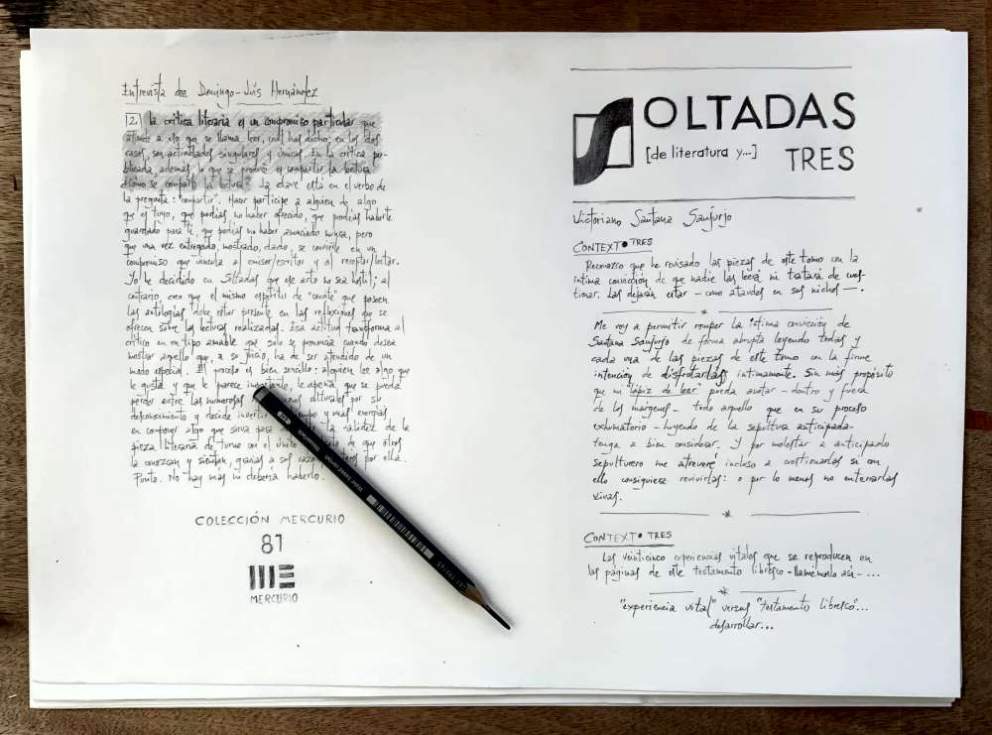 Entrevista de Domingo-Luis Hernández
[2] la crítica literaria es un compromiso particular que
casos, son actividades singulares y únicas. En la crítica pu-
blicada, además, lo que se produce es compartir la lectura.
La clave está en el verbo de
la pregunta: "compartir". Hacer partícipe a alguien de algo
que es tuyo, que podías no haber ofrecido, que podías haberte
guardado para ti, que podías no haber anunciado nunca, pero
que una vez entregado, mostrado, dado, se convierte en un
compromiso que vincula a emisor/escritor y al receptor/lector.
Yo he decidido en Soltadas que ese acto no sea hostil; al
contrario, creo que el mismo espíritu de "convite" que poseen
las antologías debe estar presente en las reflexiones que se
ofrecen sobre las lecturas realizadas. Esa actitud transforma al
crítico en un tipo amable que solo se pronuncia cuando desea
mostrar aquello que, a su juicio, ha de ser atendido de un
modo especial. El proceso es bien sencillo: alguien lee algo que
le gusta y que le parece importante, le apena que se pueda
perder entre las numerosas culturales por su
desconocimiento y decide invertir tiempo y más energías
en componer algo que sirva para la validez de la
pieza literaria de turno con el único de que otros
la conozcan y sientan, gracias a sus por ella.
Punto. No hay más ni debería haberlo.
COLECCIÓN MERCURIO
81
MERCURIO
SOLTADAS
[de literatura y...] TRES
Victoriano Santana Sanjurjo
CONTEXTO TRES
Reconozco que he revisado las piezas de este tomo con la
íntima convicción de que nadie las leerá ni tratará de cues-
tionar. Las dejarán estar - como ataúdes en sus nichos -.
Me voy a permitir romper la íntima convicción de
Santana Sanjurjo de forma abrupta leyendo todas y
cada una de las piezas de este tomo con la firme
intención de disfrutarlas íntimamente. Sin más propósito
que mi "lápiz de leer" pueda anotar - dentro y fuera
de los márgenes - todo aquello que en su proceso
exhumatorio - huyendo de la sepultura anticipada -
tenga a bien considerar. Y por molestar a anticipado
sepulturero me atreveré incluso a cuestionarlas si con
ello consiguiese revivirlas: o por lo menos no enterrarlas
vivas.
CONTEXTO TRES
Las veinticinco experiencias vitales que se reproducen en
las páginas de este testamento libresco - llamémoslo así - ...
"experiencia vital" versus "testamento libresco"...
desarrollar...